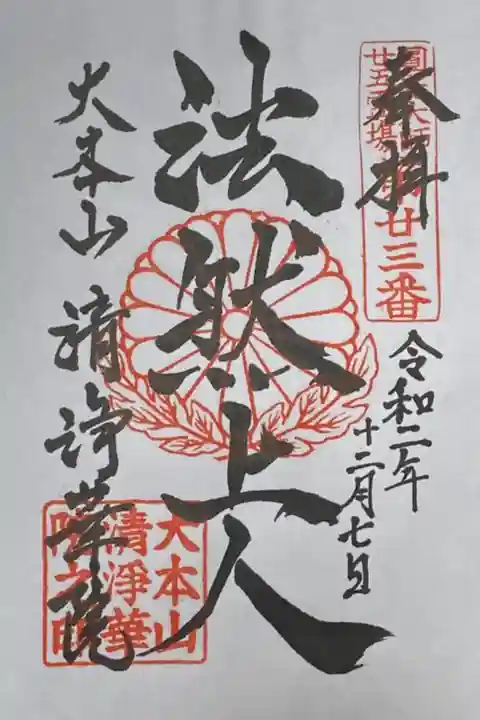 奉拝
圓光大師
廿五霊場
第廿三番
令和二年
十二月七日
法然上人
大本山 清浄華院
大本山
清淨華
院之印